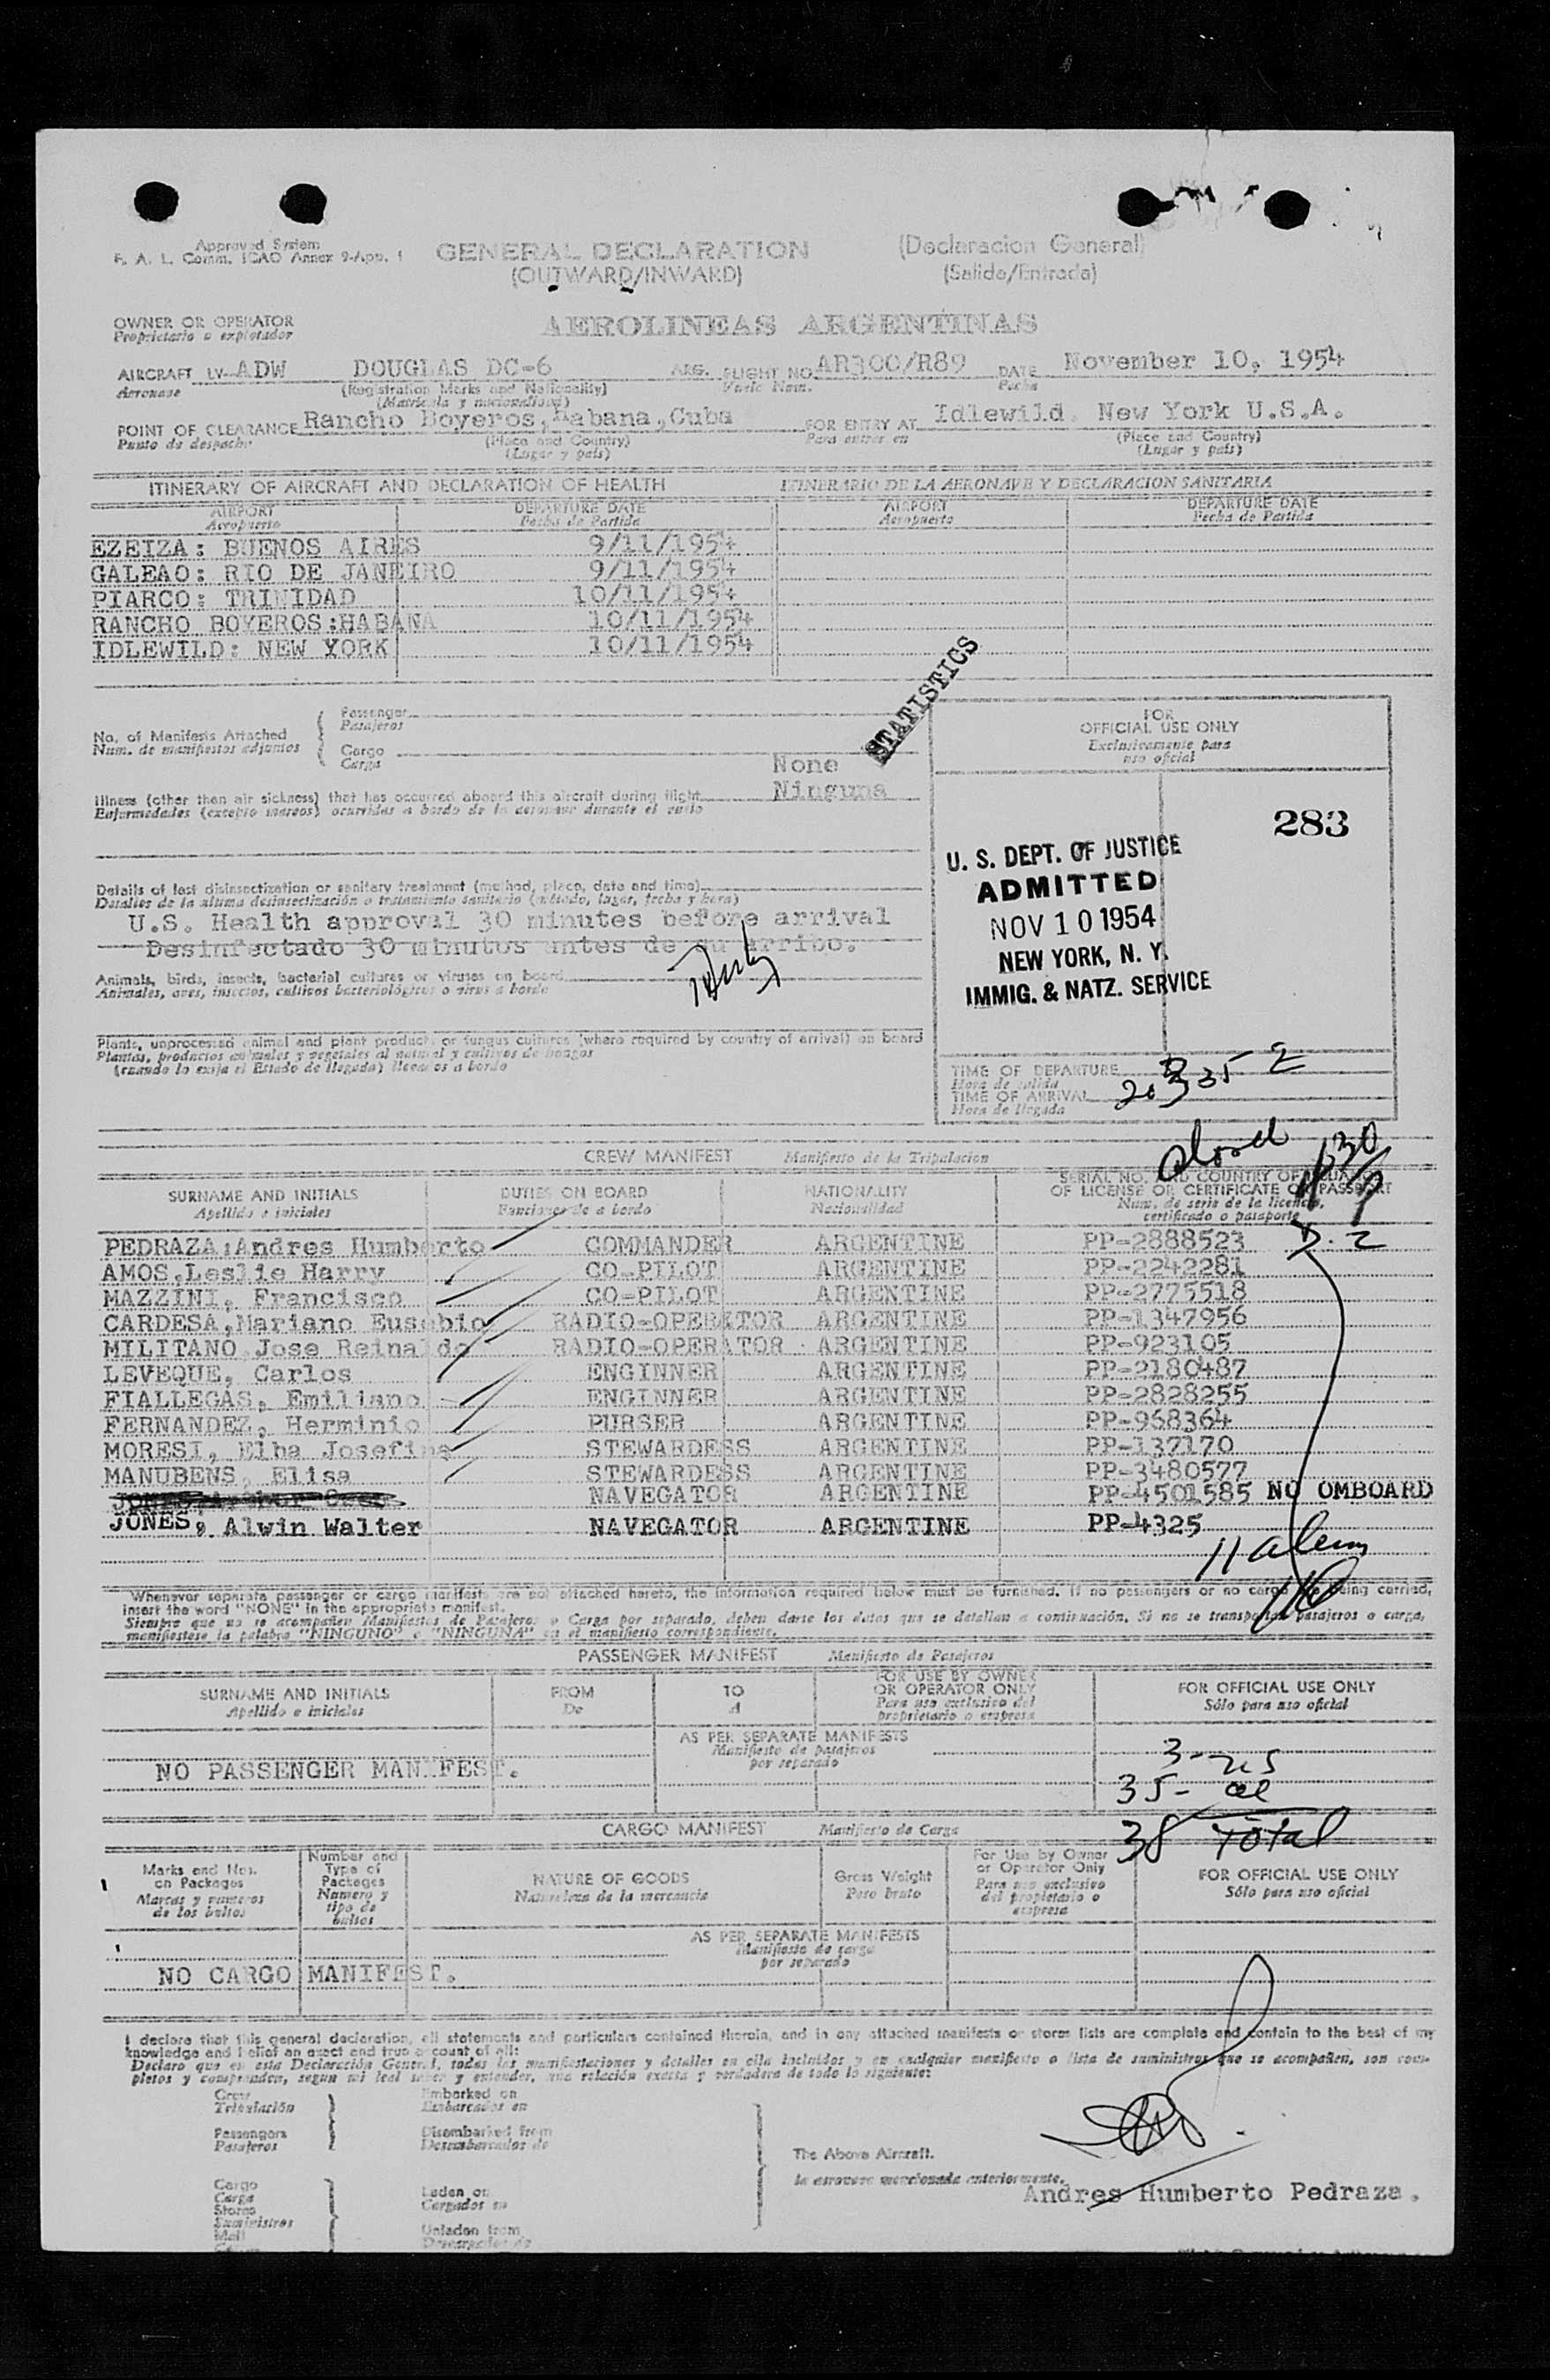 Approved System
F. A. L. Comm. ICAO Annex 9-App. 1
GENERAL DECLARATION
(OUTWARD/INWARD)
(Declaracion General)
(Salida/Entrada)
OWNER OR OPERATOR
Propietario o explotador
AEROLINEAS ARGENTINAS
AIRCRAFT LV-ADW DOUGLAS DC-6 ARG. FLIGHT NO AR300/R89 DATE November 10, 1954
Aeronave (Registration Marks and Nationality) Vuelo Num. Fecha
(Matricula y nacionalidad)
POINT OF CLEARANCE Rancho Boyeros, Habana,Cuba FOR ENTRY AT Idlewild. New York U.S.A.
Punto de despacho (Place and Country) Para entrar en (Place and Country)
(Lugar y país) (Lugar y país)
ITINERARY OF AIRCRAFT AND DECLARATION OF HEALTH ITINERARIO DE LA AERONAVE Y DECLARACION SANITARIA
AIRPORT DEPARTURE DATE AIRPORT DEPARTURE DATE
Aeropuerto Fecha de Partida Aeropuerto Fecha de Partida
EZEIZA: BUENOS AIRES 9/11/1954
GALEAO: RIO DE JANEIRO 9/11/1954
PIARCO: TRINIDAD 10/11/1954
RANCHO BOYEROS:HABANA 10/11/1954
IDLEWILD: NEW YORK 10/11/1954
STATISTICS
No. of Manifests Attached
Num. de manifiestos adjuntos
Passenger
Pasajeros
Cargo
Carga
None
Illness (other than air sickness) that has occurred aboard this aircraft during flight Ninguna
Enfermedades (excepto mareos) ocurridas a bordo de la aeronave durante el vuelo
FOR
OFFICIAL USE ONLY
Exclusivamente para
uso oficial
283
U. S. DEPT. OF JUSTICE
ADMITTED
NOV 10 1954
NEW YORK, N. Y.
IMMIG. & NATZ. SERVICE
Details of last disinsectization or sanitary treatment (method, place, date and time)
Detalles de la última desinsectización o tratamiento sanitario (método, lugar, fecha y hora)
U.S. Health approval 30 minutes before arrival
Desinfectado 30 minutos antes de su arribo.
Animals, birds, insects, bacterial cultures or viruses on board
Animales, aves, insectos, cultivos bacteriológicos o virus a bordo
Plants, unprocessed animal and plant products or fungus cultures (where required by country of arrival) on board
Plantas, productos animales y vegetales al natural y cultivos de hongos
(cuando lo exija el Estado de llegada) llevados a bordo
TIME OF DEPARTURE
Hora de salida
TIME OF ARRIVAL
Hora de llegada
CREW MANIFEST Manifiesto de la Tripulacion
SURNAME AND INITIALS DUTIES ON BOARD NATIONALITY SERIAL NO. AND COUNTRY OF ISSUANCE
OF LICENSE OR CERTIFICATE OR PASSPORT
Apellido e iniciales Funciones de a bordo Nacionalidad Num. de serie de la licencia,
certificado o pasaporte
PEDRAZA;Andres Humberto COMMANDER ARGENTINE PP-2888523
AMOS,Leslie Harry CO-PILOT ARGENTINE PP-2242281
MAZZINI, Francisco CO-PILOT ARGENTINE PP-2775518
CARDESA,Mariano Eusebio RADIO-OPERATOR ARGENTINE PP-1347956
MILITANO Jose Reinaldo RADIO-OPERATOR ARGENTINE PP-923105
LEVEQUE, Carlos ENGINNER ARGENTINE PP-2180487
FIALLEGAS, Emiliano ENGINNER ARGENTINE PP-2828255
FERNANDEZ, Herminio PURSER ARGENTINE PP-968364
MORESI, Elba Josefina STEWARDESS ARGENTINE PP-137170
MANUBENS, Elisa STEWARDESS ARGENTINE PP-3480577
NAVEGATOR ARGENTINE PP-4501585 NO OMBOARD
JONES, Alwin Walter NAVEGATOR ARGENTINE PP-4325
Whenever separate passenger or cargo manifests are not attached hereto, the information required below must be furnished. If no passengers or no cargo are being carried,
insert the word "NONE" in the appropriate manifest.
Siempre que no se acompañen Manifiestos de Pasajeros o Carga por separado, deben darse los datos que se detallan a continuación. Si no se transportan pasajeros o carga,
manifiestese la palabra "NINGUNO" o "NINGUNA" en el manifiesto correspondiente.
PASSENGER MANIFEST Manifiesto de Pasajeros
SURNAME AND INITIALS FROM TO FOR USE BY OWNER
OR OPERATOR ONLY FOR OFFICIAL USE ONLY
Apellido e iniciales De A Para uso exclusivo del
propietario o empresa Sólo para uso oficial
AS PER SEPARATE MANIFESTS
Manifiesto de pasajeros
por separado
NO PASSENGER MANIFEST.
3- US
35- al
38 TOTal
CARGO MANIFEST Manifiesto de Carga
Marks and Nos.
on Packages
Marcas y números
de los bultos
Number and
Type of
Packages
Número y
tipo de
bultos
NATURE OF GOODS
Naturaleza de la mercancía
Gross Weight
Peso bruto
For Use by Owner
or Operator Only
Para uso exclusivo
del propietario o
empresa
FOR OFFICIAL USE ONLY
Sólo para uso oficial
AS PER SEPARATE MANIFESTS
Manifiesto de carga
por separado
NO CARGO MANIFEST.
I declare that this general declaration, all statements and particulars contained therein, and in any attached manifests or stores lists are complete and contain to the best of my
knowledge and belief an exact and true account of all:
Declaro que en esta Declaración General, todas las manifestaciones y detalles en ella incluidos y en cualquier manifiesto o lista de suministros que se acompañen, son com-
pletos y comprenden, segun mi leal saber y entender, una relación exacta y verdadera de todo lo siguiente:
Crew
Tripulación
Passengers
Pasajeros
Embarked on
Embarcados en
Disembarked from
Desembarcados de
Cargo
Carga
Stores
Suministros
Mail
Laden on
Cargados en
Unladen from
The Above Aircraft.
la aeronave mencionada anteriormente.
Andres Humberto Pedraza.